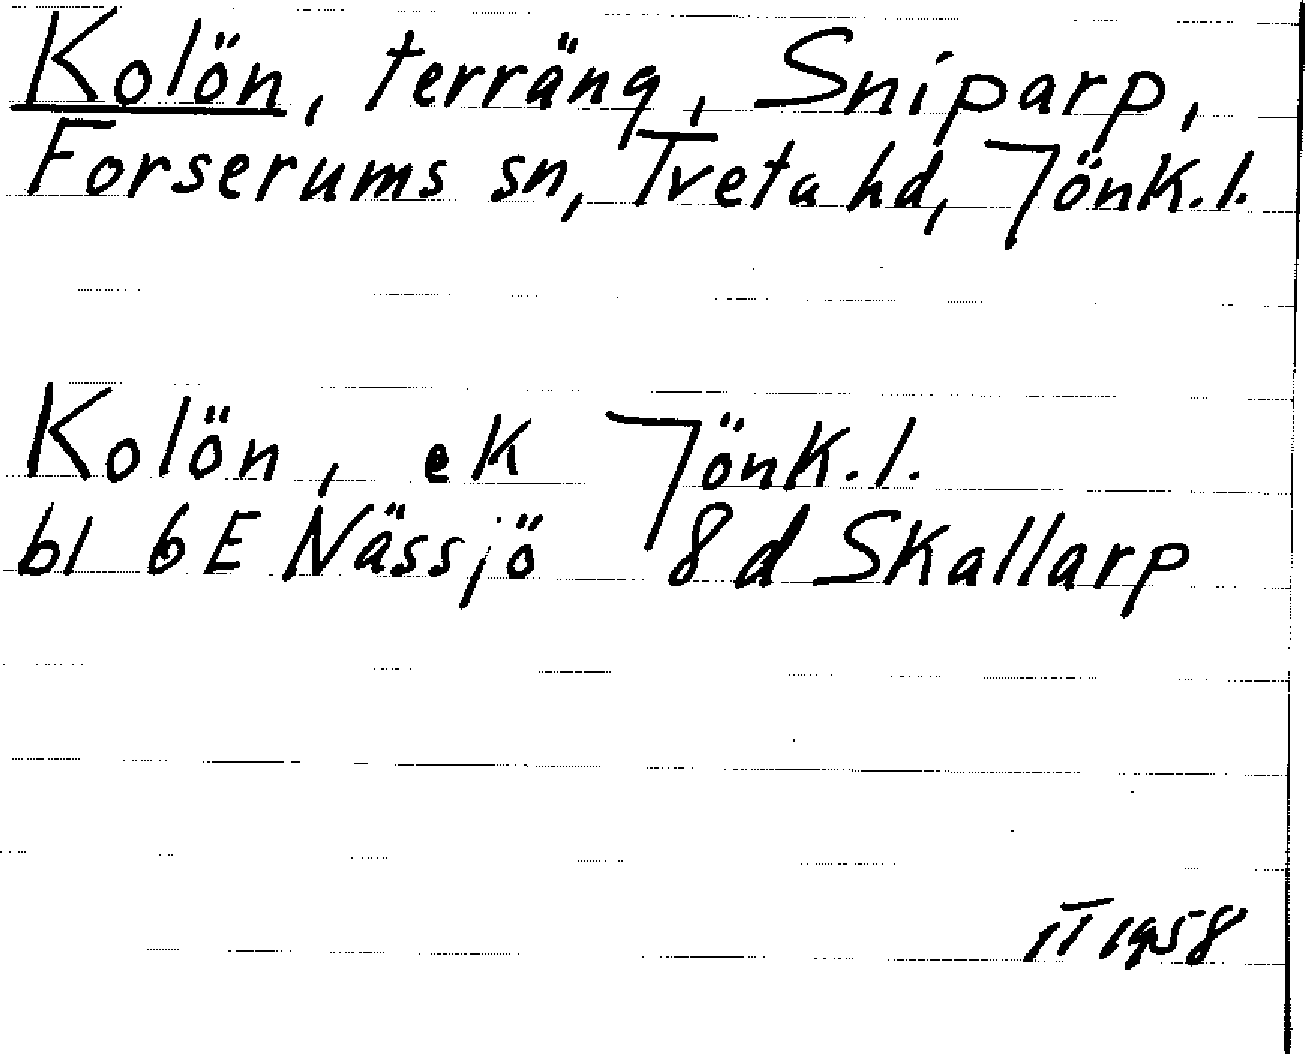 Kolön, terräng, Sniparp,
Forserums sn, Tveta hd, Jönk. l.
Kolön, ek Jönk. l.
bl 6E Nässjö 8d Skallarp
1958